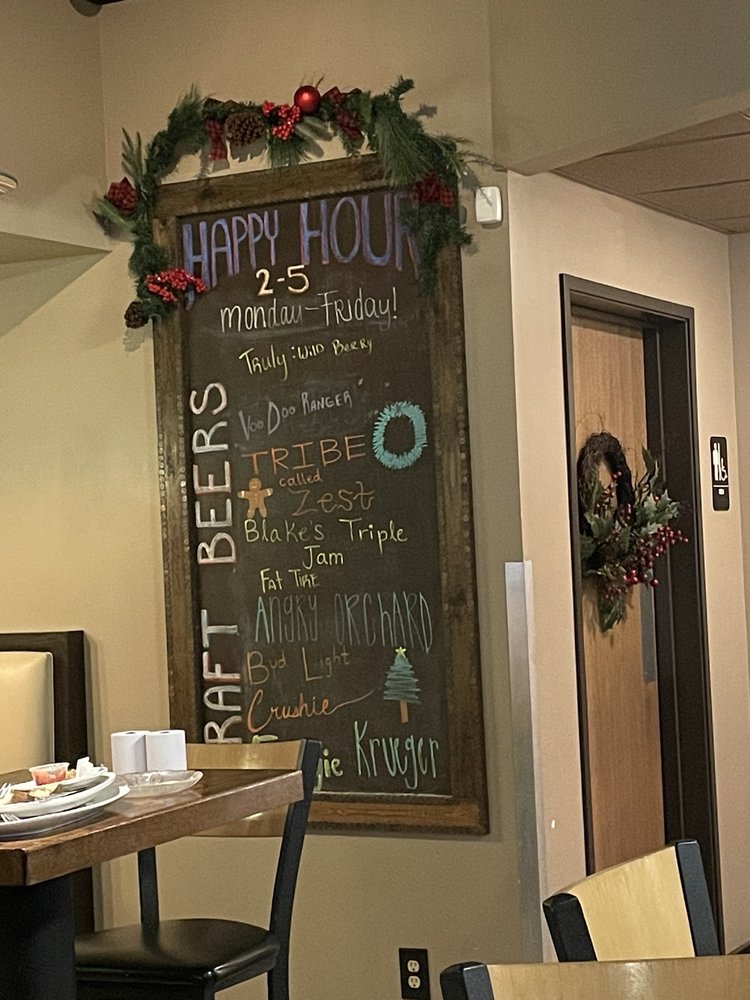 HAPPY HOUR
2-5
Monday-Friday!
Truly: Wild Berry
VooDoo RANGER
TRIBE
called
Zest
Blake's Triple
Jam
FAT TIRE
ANGRY ORCHARD
Bud Light
Crushie
Krueger
RAFT BEERS